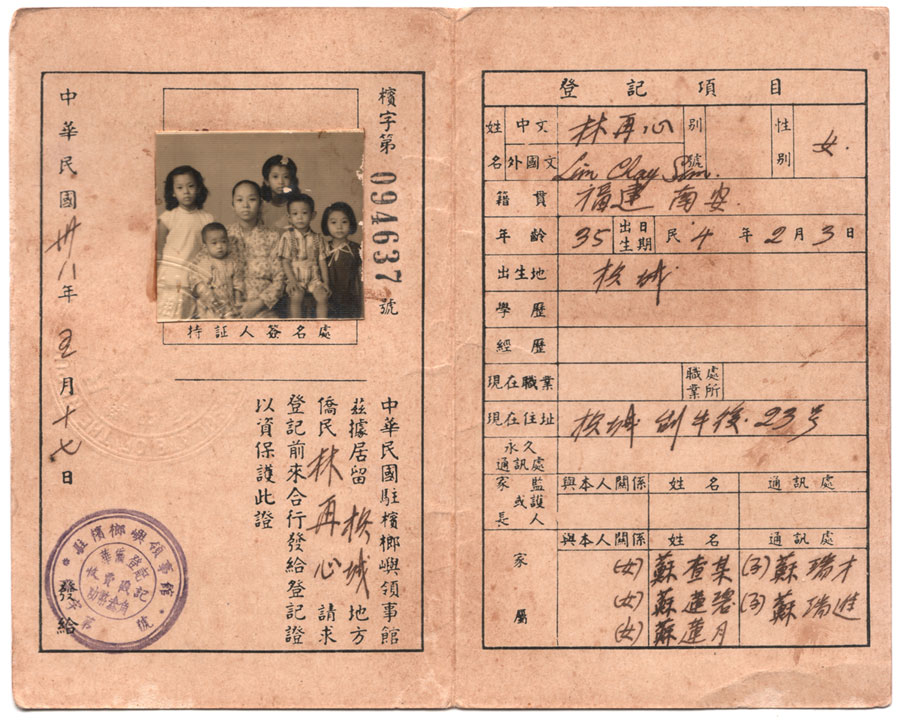 檳字第 094637 號
持証人簽名處
中華民國駐檳榔嶼領事館
茲據居留梹城地方
僑民林再心請求
登記前來合行發給登記證
以資保護此證
中華民國卅八年五月十七日
發給
駐檳榔嶼領事館
登記項目
姓名 中文 林再心 別號 性別 女
外國文 Lim Chay Sim
籍貫 福建 南安
年齡 35 出生日期 民4年2月3日
出生地 梹城
學歷
經歷
現在職業 職業處所
現在住址 梹城 刣牛後 23号
永久通訊處
家長或監護人 與本人關係 姓名 通訊處
家屬 與本人關係 姓名 通訊處
(女) 蘇查某 (子) 蘇瑞才
(女) 蘇蓮碧 (子) 蘇瑞進
(女) 蘇蓮月